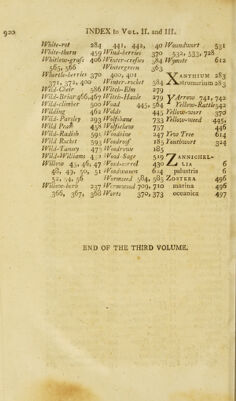 920 INDEX to VOL. II. and III.
White-rot 284
White-thorn 459
Whitlow-grass 406
565, 566
Whortle-berries 370
371, 372, 400
Wild-Cicir 586
Wild-Briar 466, 467
Wild-climber 500
Wilding 462
Wild-Parsley 293
Wild Pear 458
Wild-Radish 591
Wild Rocket 593
Wild-Tansey 473
Wild-Williams
Willow 45, 46, 47
48, 49, 50, 51
52, 56
Willow-herb 237
366, 367, 368
441, 442, 40
Wind-berries 370
Winter-cresses 584
Wintergreen 363
400, 401
Winter-rocket 584
Witch-Elm 279
Witch-Hazle 279
Woad 445, 564
Wolds 445
Wolfsbane 733
Wolfsclaw 757
Woodbine 247
Woodroof 185
Woodrowe 185
Wood-Sage 519
Wood-sorrel 430
Woodwaxen 624
Wormseed 584, 585
Wormwood 709, 710
Worts 370, 373
Woundwort 531
532, 533, 728
Wymote 612
XANTHIUM 283
Xstrumarium 283
YArrow 741, 742
Yellow-Rattle 542
Yellow-wort 370
Yellow-weed 445,
446
Yew Tree 614
Youthwort 324
ZANNICHEL-
LIA 6
palustris 6
ZOSTERA 496
marina 496
oceanica 497
END OF THE THIRD VOLUME.